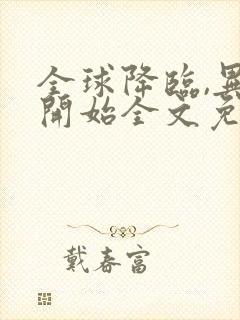 全球降臨,異
開始全文免
戴春富